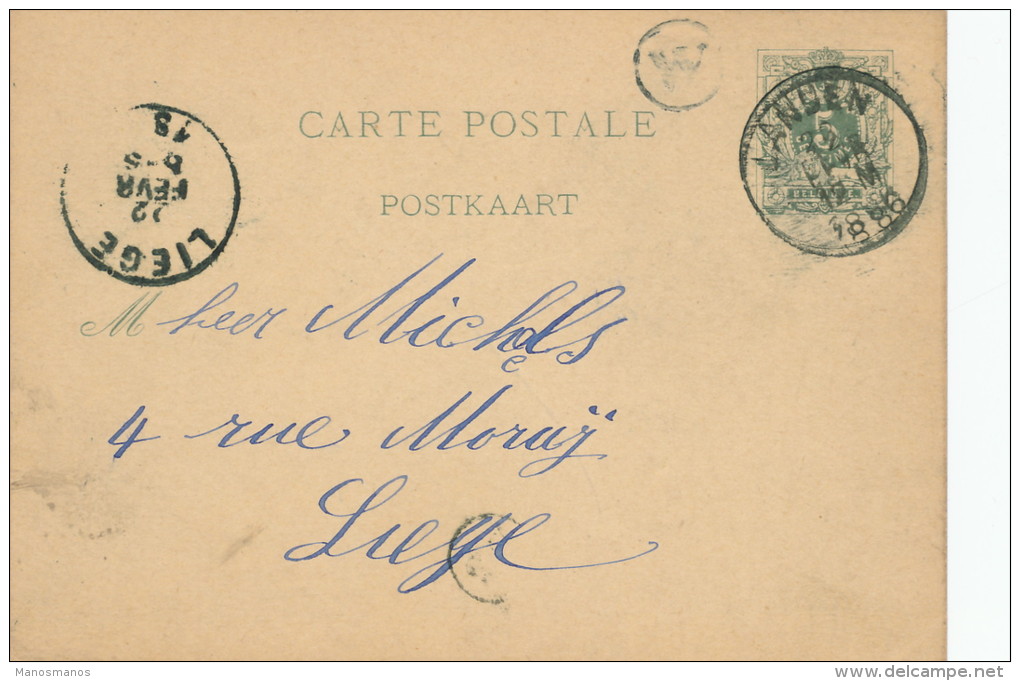 CARTE POSTALE
POSTKAART
LANDEN
1886
5
LIEGE
22
FEVR
8-S
18
Mheer Michels
4 rue Moraÿ
Liege
Manosmanos
delcampe.net